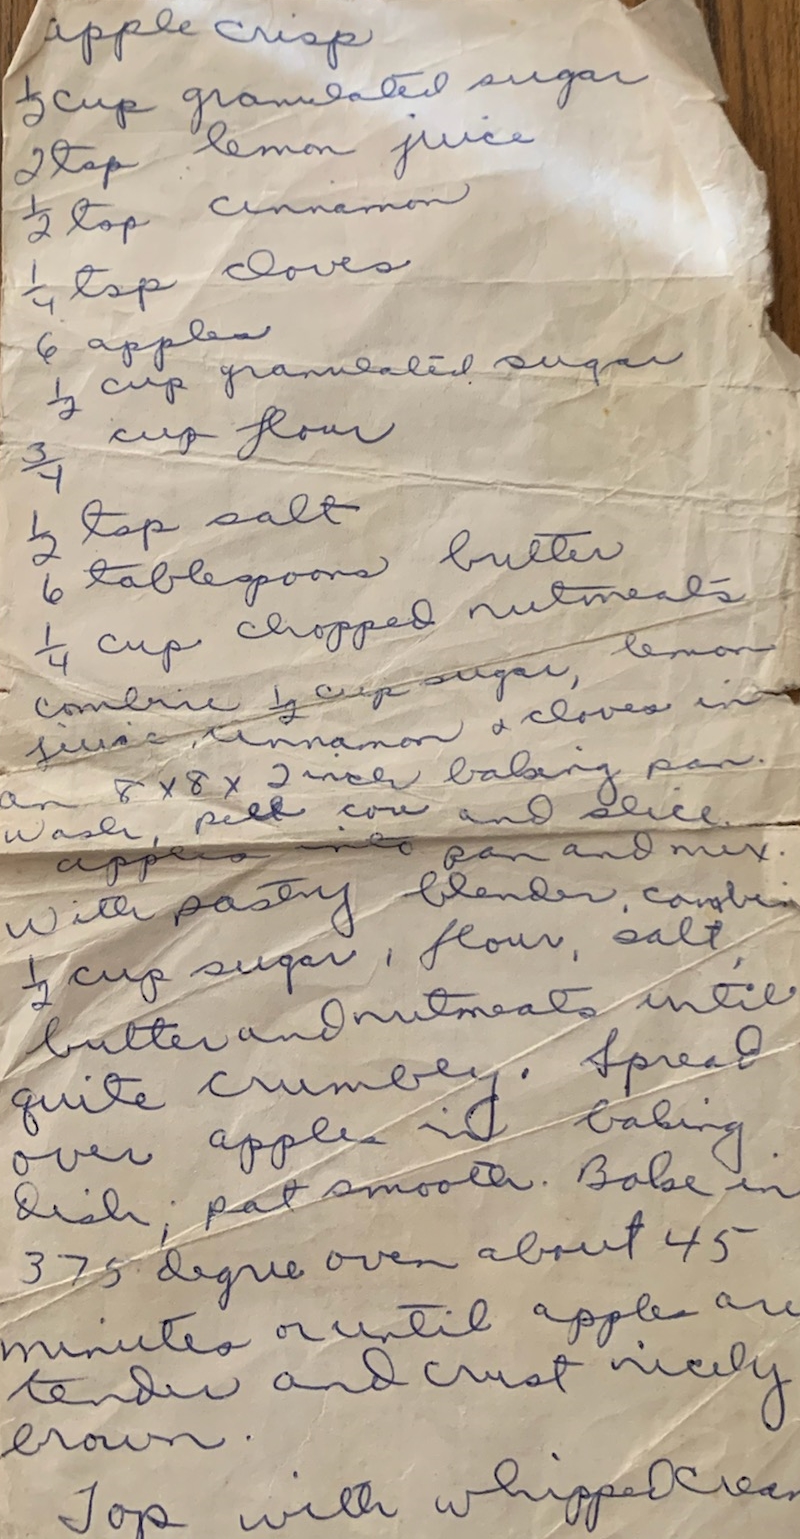 apple crisp
1/2 cup granulated sugar
2 tsp lemon juice
1/2 tsp cinnamon
1/4 tsp cloves
6 apples
1/2 cup granulated sugar
3/4 cup flour
1/2 tsp salt
6 tablespoons butter
1/4 cup chopped nutmeats
combine 1/2 cup sugar, lemon
juice, cinnamon & cloves in
an 8x8x2 inch baking pan.
Wash, peel core and slice
apples into pan and mix.
With pastry blender, combin
1/2 cup sugar, flour, salt,
butter and nutmeats until
quite crumbey. Spread
over apples in baking
dish; pat smooth. Bake in
375 degree oven about 45
minutes or until apples are
tender and crust nicely
brown.
Top with whipped cream